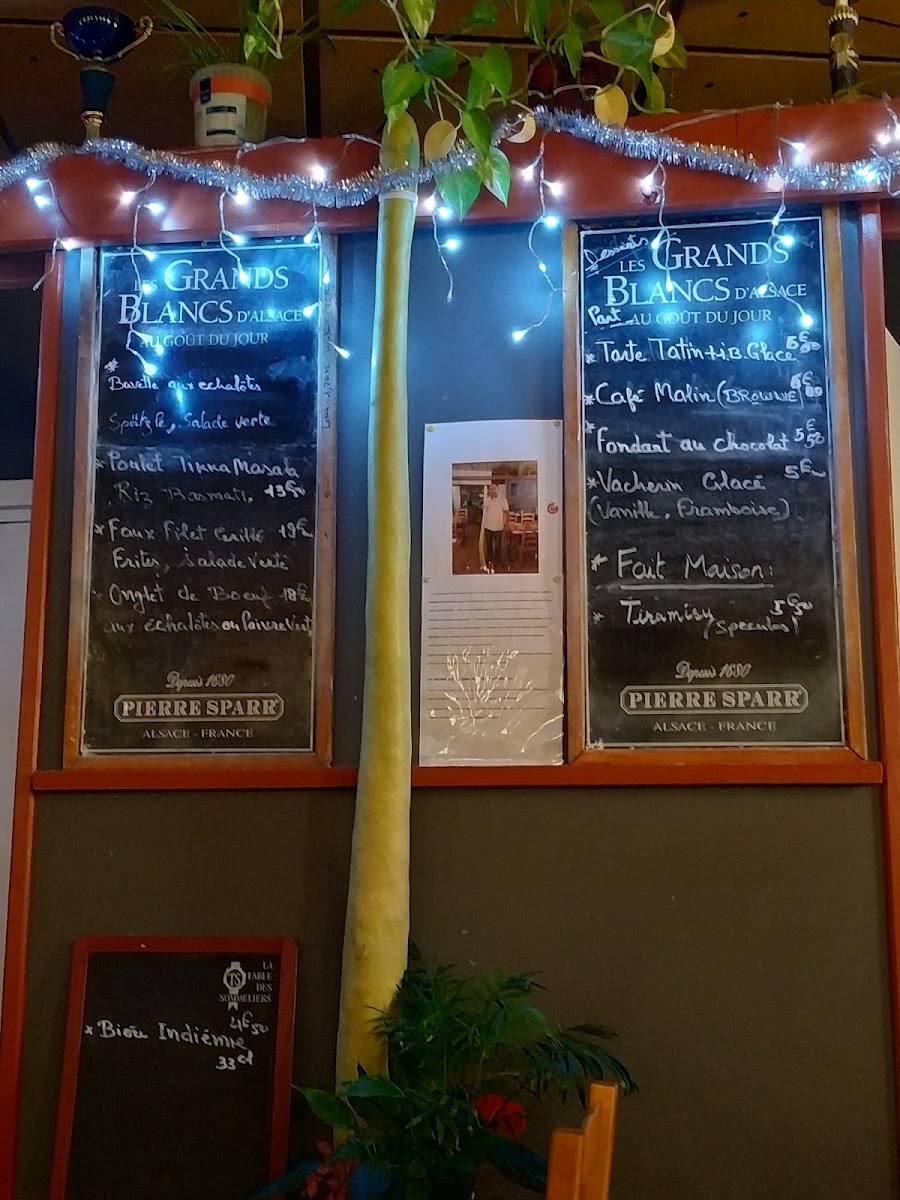 LES GRANDS
BLANCS D'ALSACE
AU GOÛT DU JOUR
*
Bavette aux echalôtes
Spätzle, Salade verte
* Poulet Tikka Masala
Riz Basmati, 13€50
* Faux Filet Grillé 19€
Frites, Salade Verte
* Onglet de Boeuf 18€
aux echalôtes ou Poivre Vert
Depuis 1680
PIERRE SPARR
ALSACE - FRANCE
Desserts
LES GRANDS
BLANCS D'ALSACE
Part AU GOÛT DU JOUR
* Tarte Tatin + B. Glacé
* Café Malin (BROWNIE)
* Fondant au chocolat 5€50
* Vacherin Glacé 5€
(Vanille, Framboise)
* Fait Maison:
* Tiramisu 5€50
(Speculos)
Depuis 1680
PIERRE SPARR
ALSACE - FRANCE
LA
TABLE
DES
SOMMELIERS
TS
4€50
* Bière Indiénne
33cl